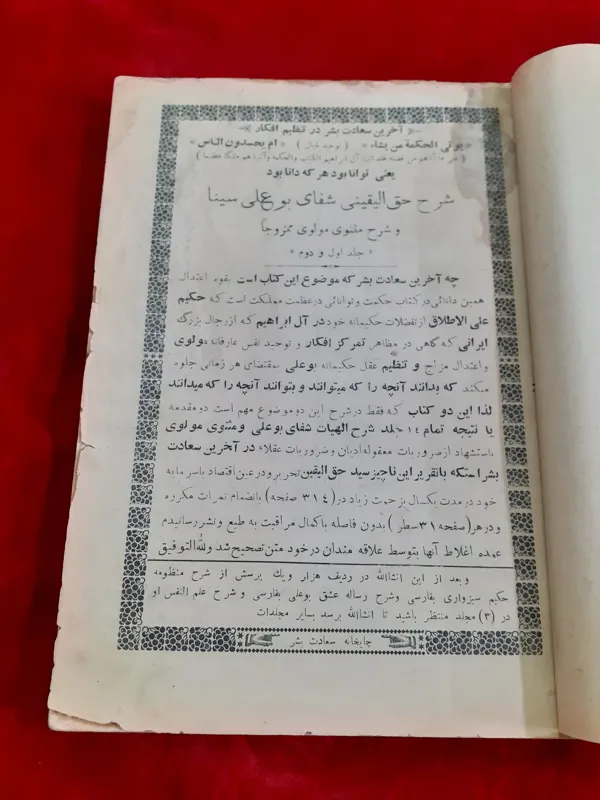 آخرین سعادت بشر در تنظیم افکار
« یؤتی الحکمة من یشاء » ( توحید خیال ) « ام یحسدون الناس »
یعنی توانا بود هر که دانا بود
شرح حق الیقینی شفای بوعلی سینا
و شرح مثنوی مولوی ممزوجاً
« جلد اول و دوم »
چه آخرین سعادت بشر که موضوع این کتاب است بقوه اعتدال
همین دانائی در کتاب حکمت و توانائی در عظمت مملکت است که حکیم
علی الاطلاق از تفضلات حکیمانه خود در آل ابراهیم که از رجال بزرگ
ایرانی که گاهی در مظاهر تمرکز افکار و توحید نفس عارفانه مولوی
و اعتدال مزاج و تنظیم عقل حکیمانه بوعلی بمقتضای هر زمانی جلوه
میکند که بدانند آنچه را که میتوانند و بتوانند آنچه را که میدانند
لذا این دو کتاب که فقط در شرح این دو موضوع مهم است دو مقدمه
با نتیجه تمام ۱۴ جلد شرح الهیات شفای بوعلی و مثنوی مولوی
باستشهاد از ضروریات معقوله ادیان و ضروریات عقلاء در آخرین سعادت
بشر استکه بانقریر این ناچیز سید حق الیقین تحریر و در عین اقتصاد باسرمایه
خود در مدت یکسال بزحمت زیاد در (۳۱۴ صفحه) بانضمام ثمرات مکرره
و در هر (صفحه ۳۱ سطر) بدون فاصله باکمال مراقبت به طبع و نشر رسانیدم
عمده اغلاط آنها بتوسط علاقه مندان در خود متن تصحیح شد ولله التوفیق
و بعد از این انشاالله در ردیف هزار و یك پرسش از شرح منظومه
حکیم سبزواری بفارسی وشرح رساله عشق بوعلی بفارسی و شرح علم النفس او
در (۳) مجلد منتظر باشید تا انشاالله برسد بسایر مجلدات
چاپخانه سعادت بشر